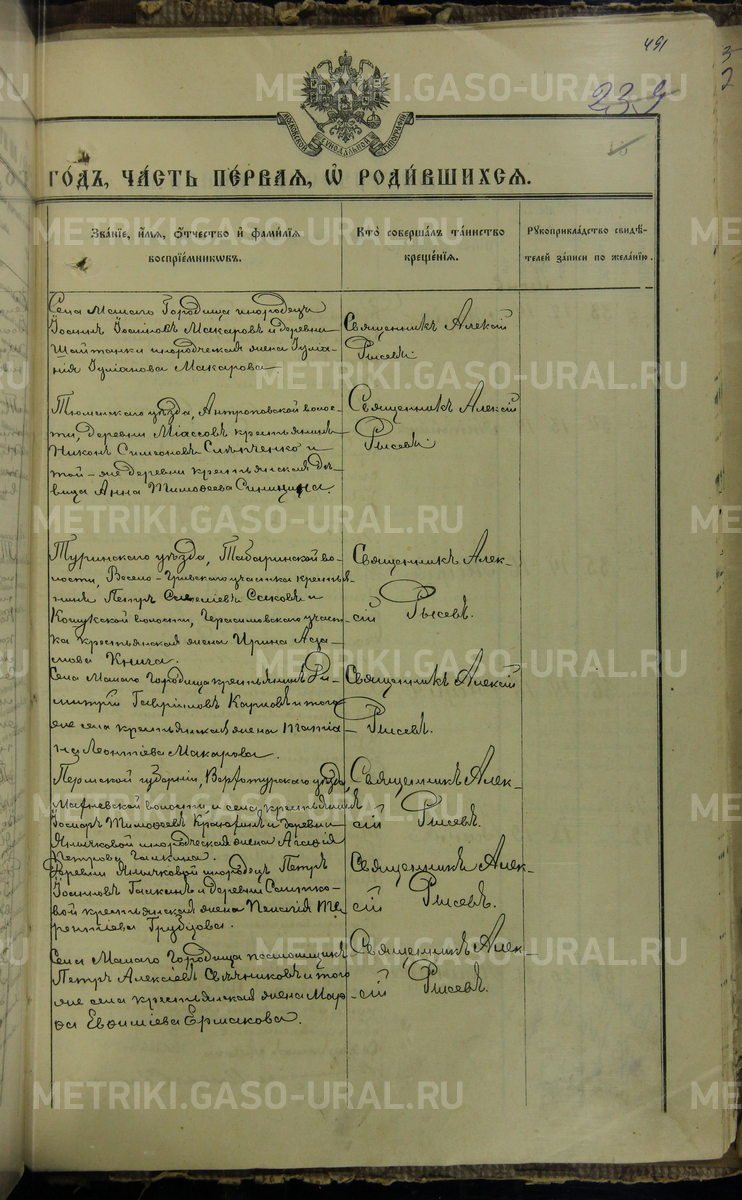 491
239
МОСКОВСКОЙ СѴНОДАЛЬНОЙ ТИПОГРАФІИ
ГОДЪ, ЧАСТЬ ПЕРВАЯ, Ѡ РОДИВШИХСЯ.
Званіе, имя, отчество и фамилія
воспріемниковъ.
Кто совершалъ таинство
крещенія.
Рукоприкладство свидѣ-
телей записи по желанію.
Села Малаго Городища инородецъ
Іоаннъ Іоанновъ Макаровъ и деревни
Шайтанки инородческая жена Іуліа-
нія Іуліанова Макарова
Священникъ Алексій
Рысевъ.
Тюменскаго уѣзда, Антроповской волос-
ти, деревни Міассовъ крестьянинъ
Никонъ Симеоновъ и
той-же деревни крестьянская дѣ-
вица Анна Тимофеева Синицына.
Священникъ Алексій
Рысевъ.
Туринскаго уѣзда, Табаринской во-
лости, участка крестья-
нинъ Петръ и
Кошукской волости, Герасимовскаго участ-
ка крестьянская жена Ирина Ада-
мова Книга.
Священникъ Алек-
сій Рысевъ.
Села Малаго Городища крестьянинъ Ди-
митрій Гавріиловъ Карповъ и того
же села крестьянская жена Татіа-
на Леонтіева Макарова.
Священникъ Алексій
Рысевъ.
Пермской губерніи, Верхотурскаго уѣзда,
волости, и села крестьянинъ
Тимофеевъ и деревни
Янычковой инородческая жена Агафія
Петрова Гилкина.
Священникъ Алек-
сій Рысевъ.
Деревни Янычковой инородецъ Петръ
Іоанновъ и деревни
крестьянская жена Пелагія Те-
рентіева Трубцова.
Священникъ Алек-
сій Рысевъ.
Села Малаго Городища псаломщикъ
Петръ Алексіевъ Свѣчниковъ и того
же села крестьянская жена Мар-
ѳа Евфиміева Ермакова.
Священникъ Алек-
сій Рысевъ.
METRIKI.GASO-URAL.RU